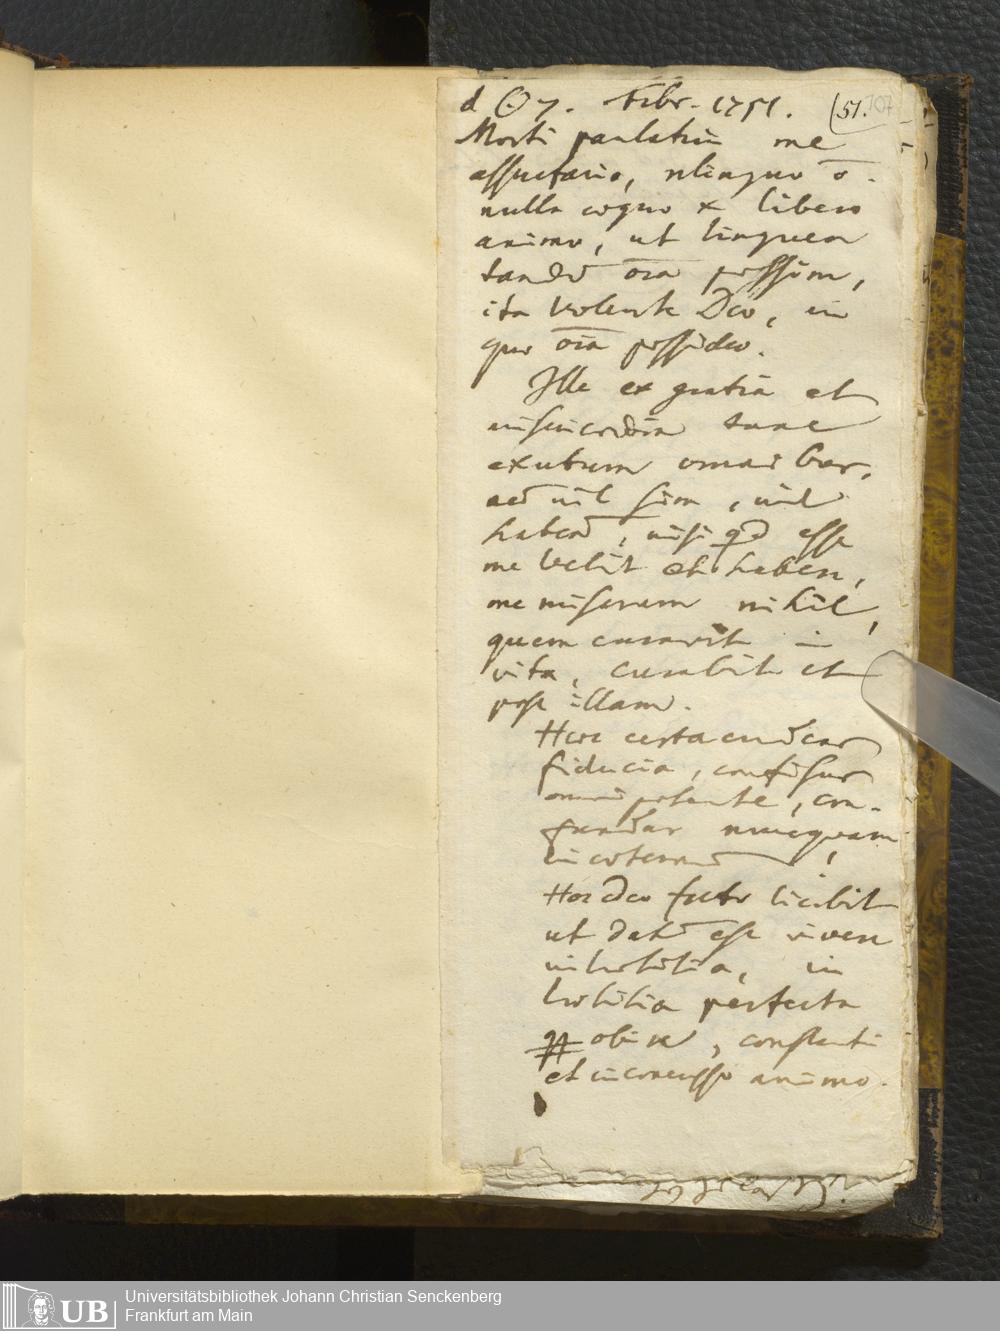 d. ☉ 7. Febr. 1751. (51. 107
Morti paulatim me
assuefacio, relinquo o͞
nulla cogno x libero
animo, ut linquere
tandē o͞ia possim,
ita volente Deo, in
quo o͞ia possideo.
Ille ex gratia et
misericordia tunc
exutum omni
nil sim, nil
habeā, nisi qd esse
me velit et habere,
me miserum nihil,
quem curavit in
vita, curabit et
post illam.
Hac certa
fiducia, confisus
omnipotente, con-
fundar nunquam
in aeternū,
Hoc Deo licebit
ut datū est vivere
in laetitia, in
laetitia perfecta
obire, constanti
et inconcusso animo.
Universitätsbibliothek Johann Christian Senckenberg
UB Frankfurt am Main